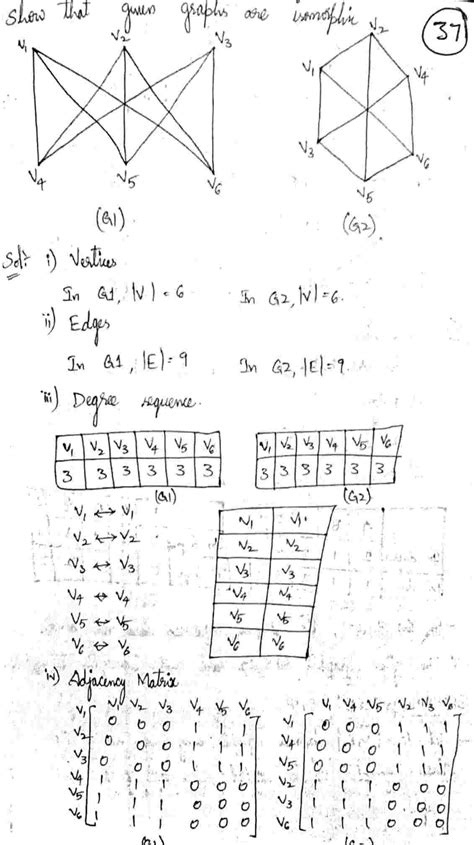 Show that given graphs are isomorphic
37
V1 V2 V3
V4 V5 V6
(G1)
V2
V1 V4
V3 V6
V5
(G2)
Sol: i) Vertices
In G1, |V| = 6 In G2, |V| = 6.
ii) Edges
In G1, |E| = 9 In G2, |E| = 9.
iii) Degree sequence.
V1 V2 V3 V4 V5 V6
3 3 3 3 3 3
(G1)
V1 V2 V3 V4 V5 V6
3 3 3 3 3 3
(G2)
V1 ↔ V1
V2 ↔ V2
V3 ↔ V3
V4 ↔ V4
V5 ↔ V5
V6 ↔ V6
V1 V1
V2 V2
V3 V3
V4 V4
V5 V5
V6 V6
iv) Adjacency Matrix
V1 V2 V3 V4 V5 V6
V1 0 0 0 1 1 1
V2 0 0 0 1 1 1
V3 0 0 0 1 1 1
V4 1 1 1 0 0 0
V5 1 1 1 0 0 0
V6 1 1 1 0 0 0
V1 V4 V5 V2 V3 V6
V1 0 0 0 1 1 1
V4 0 0 0 1 1 1
V5 0 0 0 1 1 1
V2 1 1 1 0 0 0
V3 1 1 1 0 0 0
V6 1 1 1 0 0 0